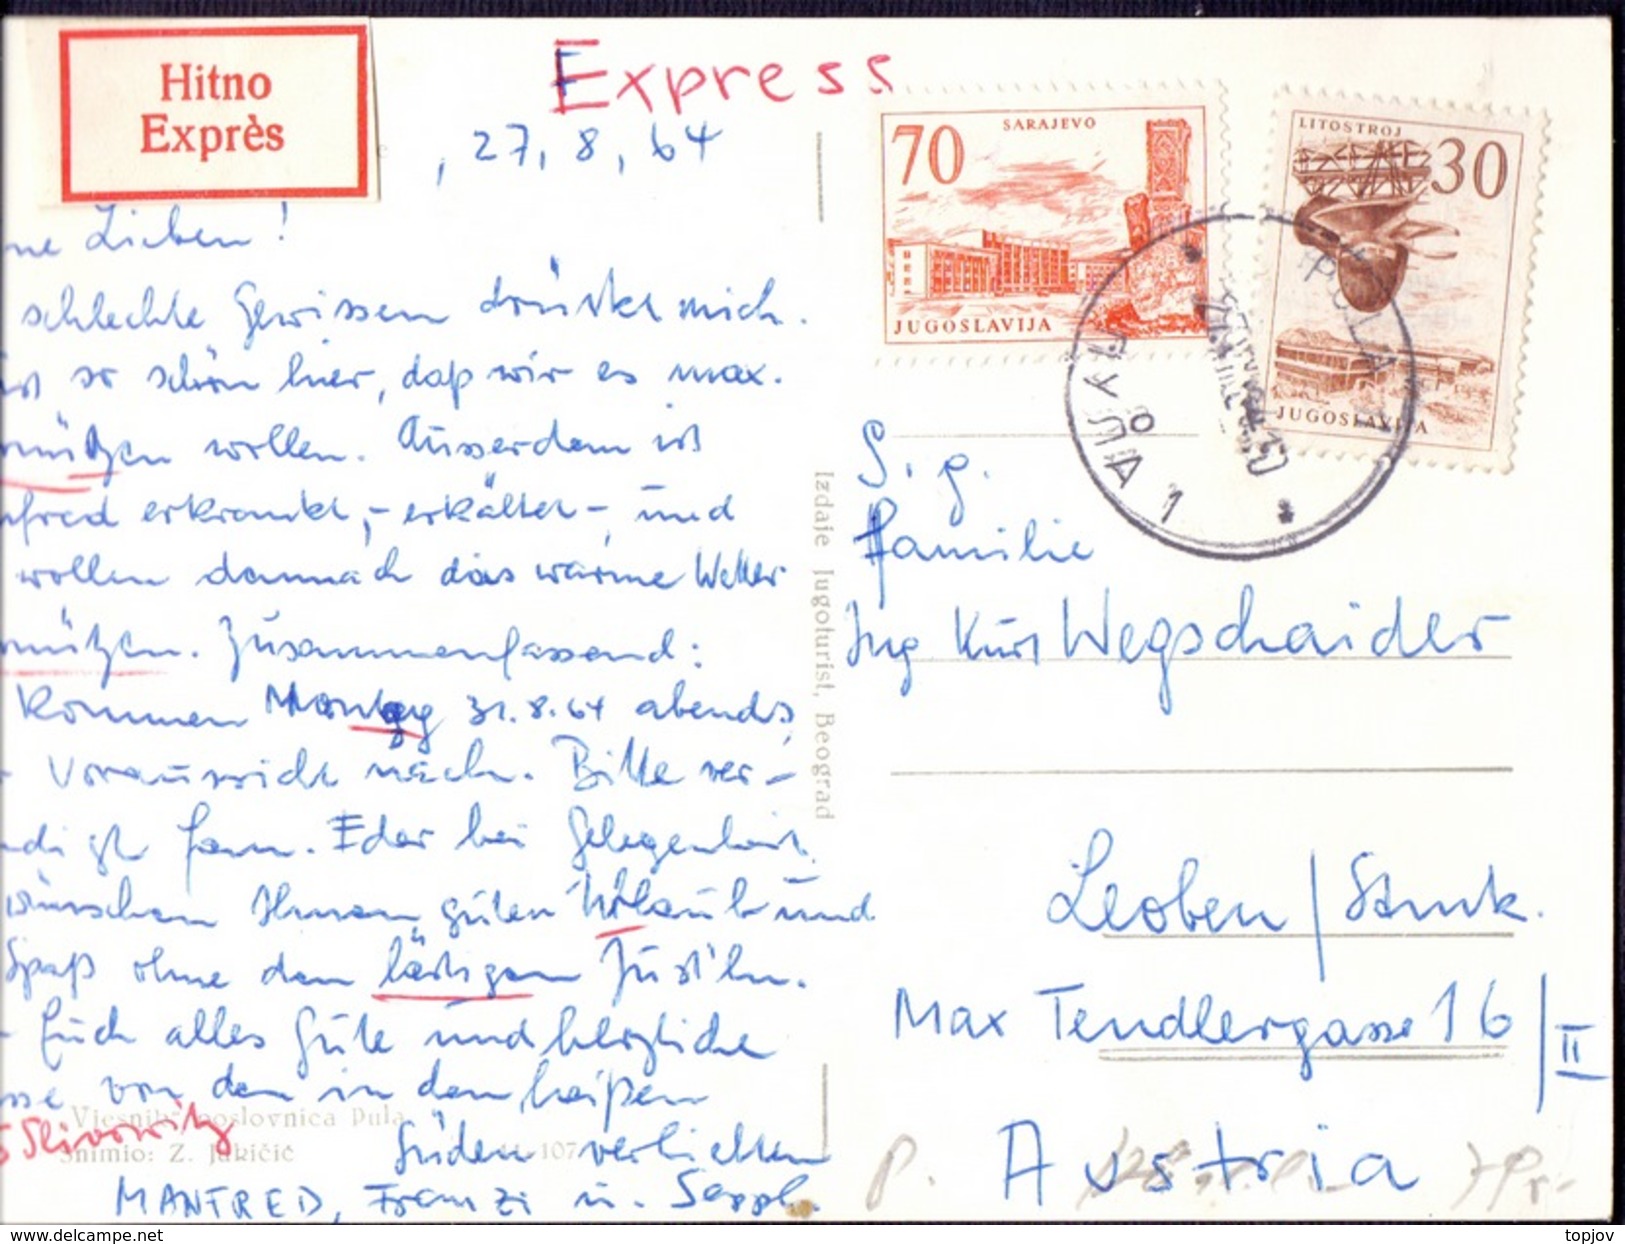 Hitno
Exprès
Express
, 27, 8, 64
ne Lieben!
schlechte Gewissen drückt mich.
ist so schön hier, daß wir es max.
nützen wollen. Ausserdem ist
nfred erkrankt, - erkältet -, und
wollen dannach das warme Wetter
nützen. Zusammenfassend:
kommen Montag 31.8.64 abends,
Voraussicht nach. Bitte ver-
digt Fam. Eder bei Gelegenheit.
wünschen Ihnen guten Urlaub und
Spaß ohne den lästigen
Euch alles Gute und herzliche
sse von den in den heißen
Slivowitz
Süden verliebten
MANFRED, Franzi u. Seppl.
Vjesnik-poslovnica Pula
Snimio: Z. Jakičić
107
Izdaje Jugoturist, Beograd
70
SARAJEVO
JUGOSLAVIJA
LITOSTROJ
30
JUGOSLAVIJA
PULA 1
ПУЛА
S. g.
Familie
Ing Kurt Wegschaider
Leoben / Stmk.
Max Tendlergasse 16 / II
Austria
P.
topjov